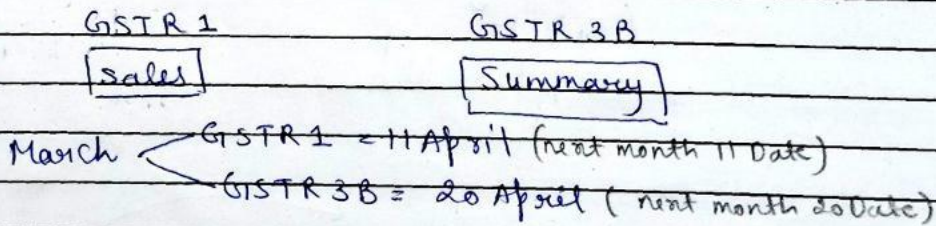 GSTR 1 GSTR 3B
Sales Summary
March GSTR 1 = 11 April (next month 11 Date)
GSTR 3B = 20 April (next month 20 Date)